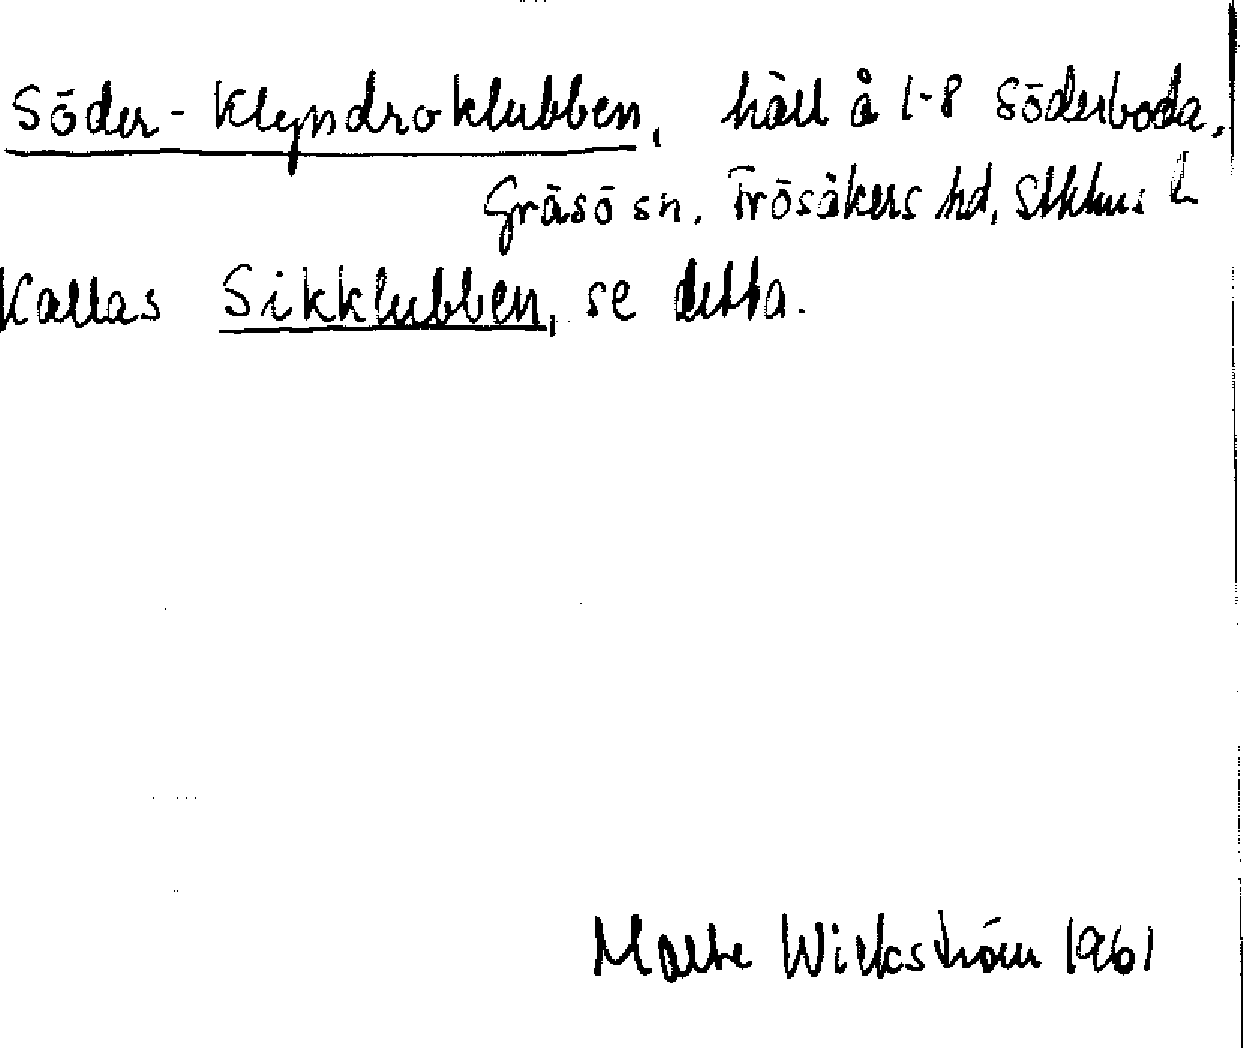 Söder-Klyndroklubben, häll å 1-8 Söderboda,
Gräsö sn. Frösåkers hd, Sthlms L
Kallas Sikklubben, se detta.
Malte Wickström 1961